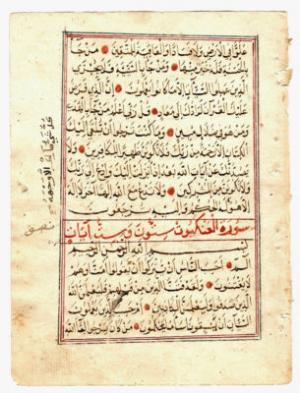 علوا في الارض ولا فسادا والعاقبة للمتقين من جاء
بالحسنة فله خير منها ومن جاء بالسيئة فلا يجزى
الذين عملوا السيئات الا ما كانوا يعملون ان الذي فرض
عليك القرآن لرادك الى معاد قل ربي اعلم من جاء بالهدى
ومن هو في ضلال مبين وما كنت ترجوا ان يلقى اليك
الكتاب الا رحمة من ربك فلا تكونن ظهيرا للكافرين ولا
يصدنك عن آيات الله بعد اذ انزلت اليك وادع الى
ربك ولا تكونن من المشركين ولا تدع مع الله الها آخر لا اله
الا هو له الحكم واليه ترجعون
كل شيء هالك الا وجهه
سورة العنكبوت ستون وتسع آيات
بسم الله الرحمن الرحيم
الم احسب الناس ان يتركوا ان يقولوا آمنا وهم
لا يفتنون ولقد فتنا الذين من قبلهم فليعلمن الله
الذين صدقوا وليعلمن الكاذبين ام حسب الذين يعملون
السيئات ان يسبقونا ساء ما يحكمون من كان يرجوا لقاء الله